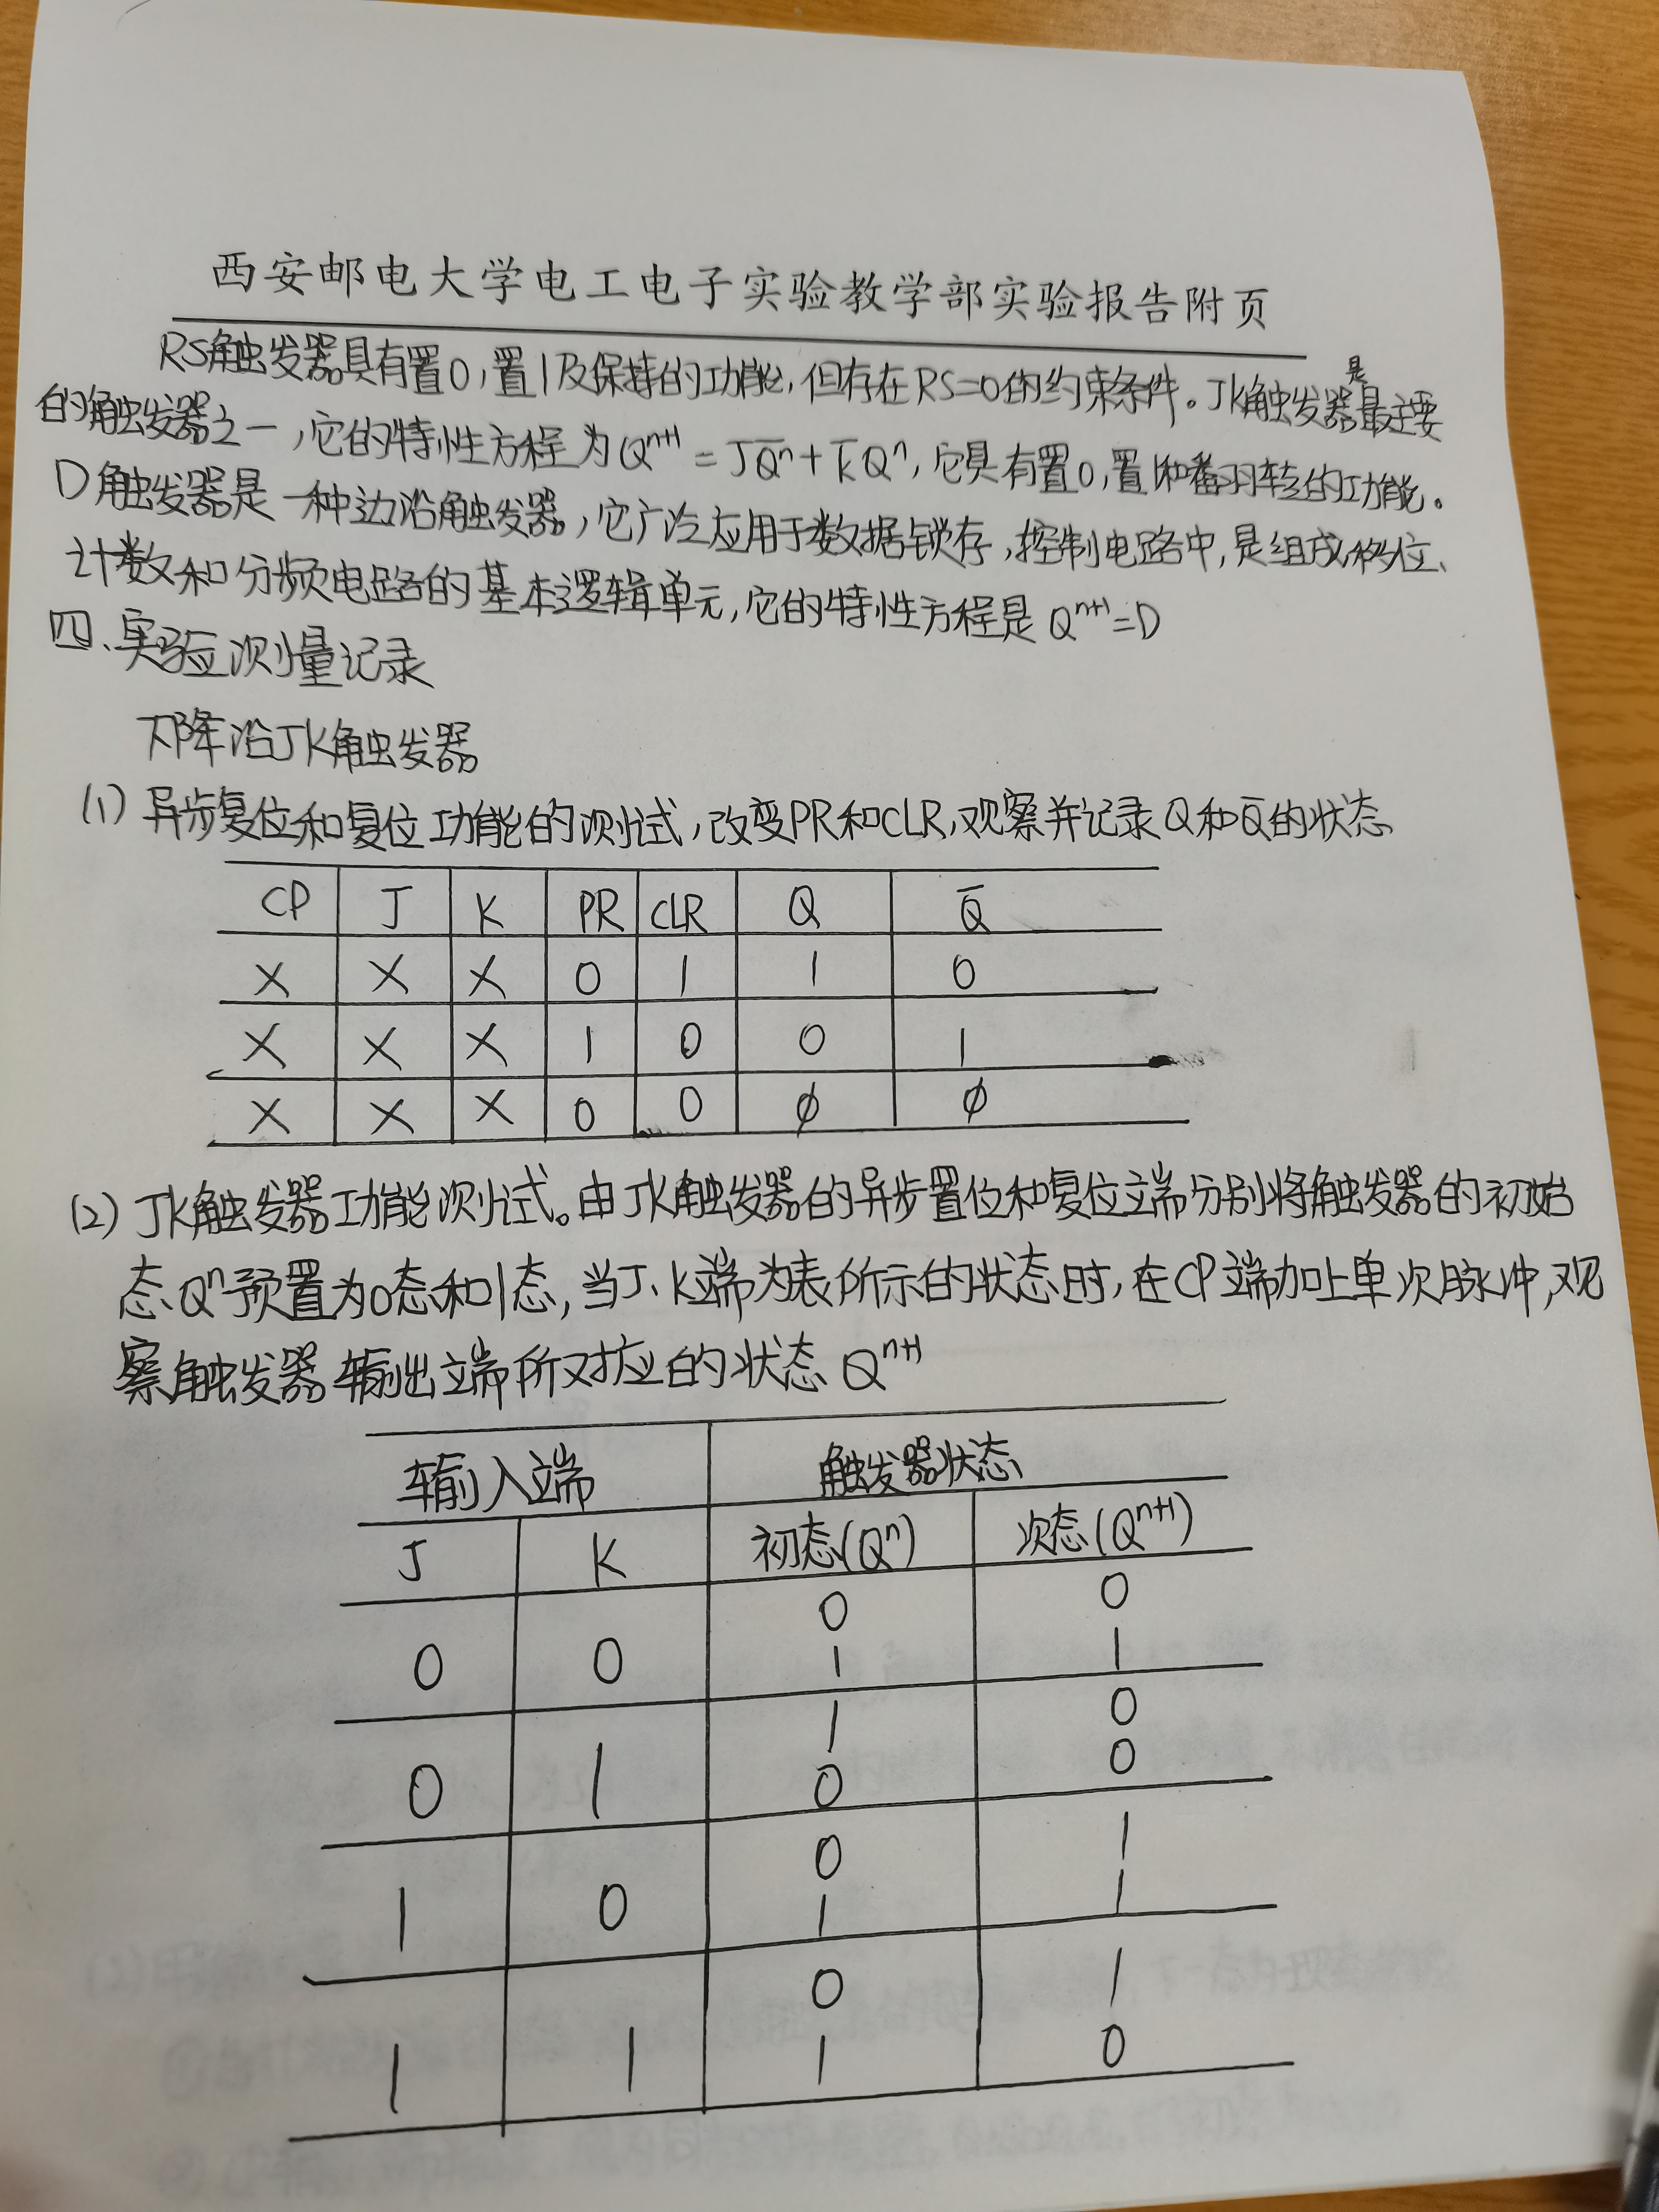 西安邮电大学电工电子实验教学部实验报告附页
RS触发器具有置0,置1及保持的功能,但存在RS=0的约束条件。JK触发器是最主要
的触发器之一,它的特性方程为Qⁿ⁺¹=JQ̅ⁿ+K̅Qⁿ,它具有置0,置1和翻转的功能。
D触发器是一种边沿触发器,它广泛应用于数据锁存,控制电路中,是组成移位、
计数和分频电路的基本逻辑单元,它的特性方程是Qⁿ⁺¹=D
四、实验测量记录
下降沿JK触发器
(1)异步复位和复位功能的测试,改变PR和CLR,观察并记录Q和Q̅的状态
CP J K PR CLR Q Q̅
X X X 0 1 1 0
X X X 1 0 0 1
X X X 0 0 ϕ ϕ
(2)JK触发器功能测试。由JK触发器的异步置位和复位端分别将触发器的初始
态Qⁿ预置为0态和1态,当J、K端为表所示的状态时,在CP端加上单次脉冲,观
察触发器输出端所对应的状态Qⁿ⁺¹
输入端 触发器状态
J K 初态(Qⁿ) 次态(Qⁿ⁺¹)
0 0
0 0 1 1
1 0
0 1 0 0
0 1
1 0 1 1
0 1
1 1 1 0